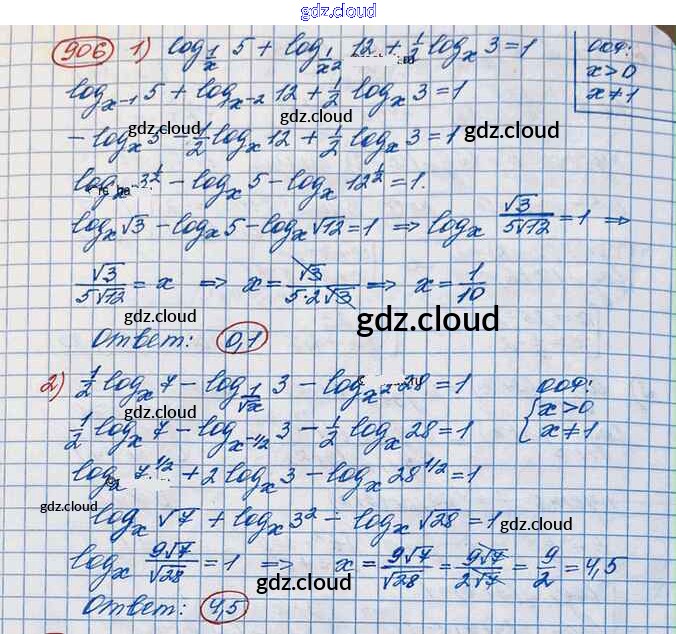 gdz.cloud
906 1) log_{1/x} 5 + log_{1/x²} 12 + ½ log_x 3 = 1
ООФ:
x > 0
x ≠ 1
log_{x⁻¹} 5 + log_{x⁻²} 12 + ½ log_x 3 = 1
gdz.cloud
- log_x 5 - ½ log_x 12 + ½ log_x 3 = 1
gdz.cloud
gdz.cloud
log_x 3^{½} - log_x 5 - log_x 12^{½} = 1.
log_x √3 - log_x 5 - log_x √12 = 1 ⇒ log_x √3/(5√12) = 1 ⇒
√3/(5√12) = x ⇒ x = √3/(5·2√3) ⇒ x = 1/10
gdz.cloud
Ответ: 0,1
2) ½ log_x 7 - log_{1/√x} 3 - log_{x²} 28 = 1
ООФ:
{ x > 0
x ≠ 1
gdz.cloud
½ log_x 7 - log_{x^{-1/2}} 3 - ½ log_x 28 = 1
log_x 7^{1/2} + 2 log_x 3 - log_x 28^{1/2} = 1
gdz.cloud
log_x √7 + log_x 3² - log_x √28 = 1
gdz.cloud
log_x 9√7/√28 = 1 ⇒ x = 9√7/√28 = 9√7/2√7 = 9/2 = 4,5
gdz.cloud
gdz.cloud
Ответ: 4,5